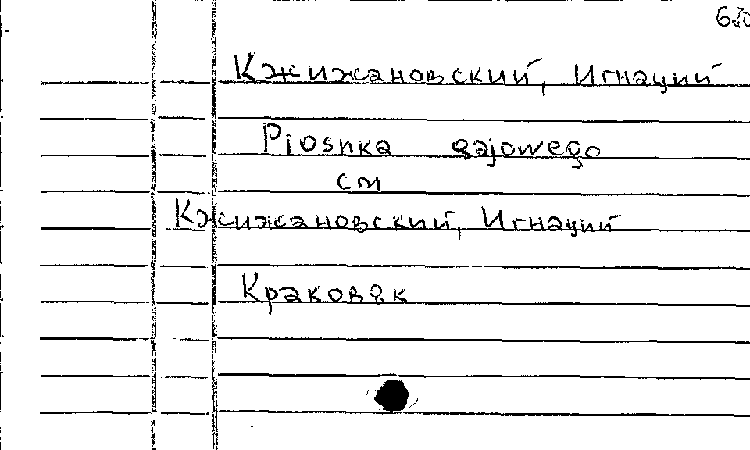 Кжижановский, Игнаций
Piosnka gajowego
см
Кжижановский, Игнаций
Краковяк